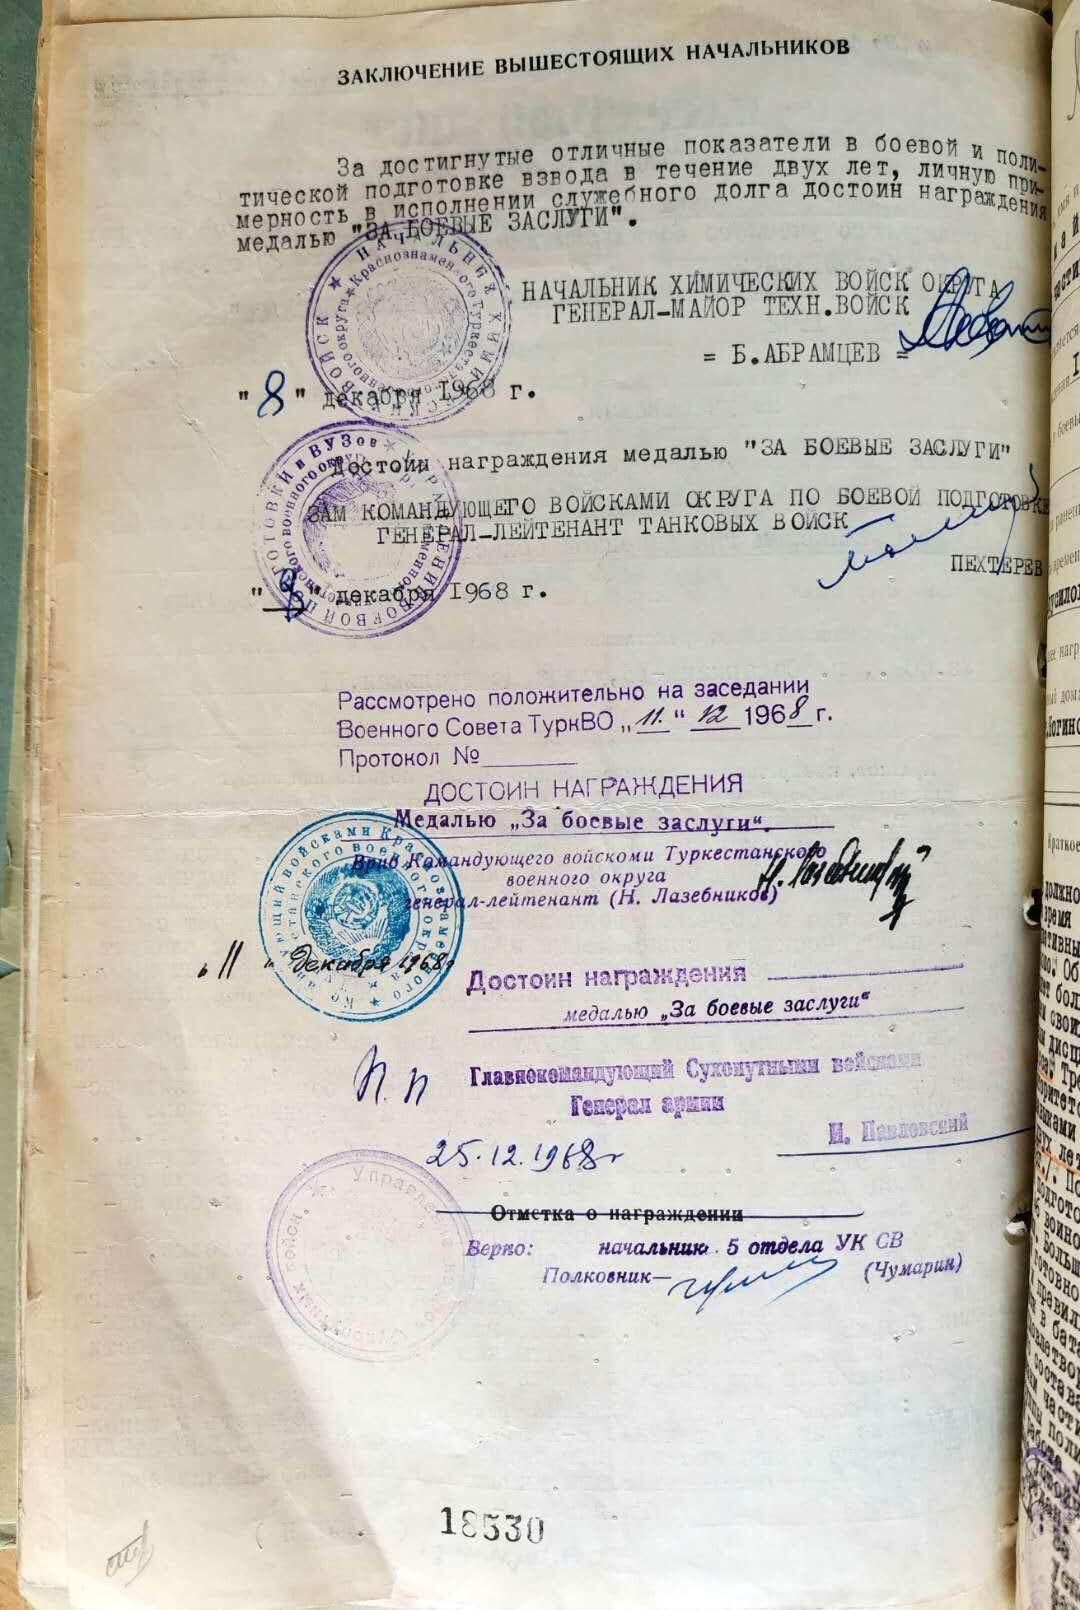 ЗАКЛЮЧЕНИЕ ВЫШЕСТОЯЩИХ НАЧАЛЬНИКОВ
За достигнутые отличные показатели в боевой и поли-
тической подготовке взвода в течение двух лет, личную при-
мерность в исполнении служебного долга достоин награждения
медалью "ЗА БОЕВЫЕ ЗАСЛУГИ".
НАЧАЛЬНИК ХИМИЧЕСКИХ ВОЙСК ОКРУГА
ГЕНЕРАЛ-МАЙОР ТЕХН.ВОЙСК
= Б.АБРАМЦЕВ =
"8" декабря 1968 г.
Достоин награждения медалью "ЗА БОЕВЫЕ ЗАСЛУГИ"
ЗАМ КОМАНДУЮЩЕГО ВОЙСКАМИ ОКРУГА ПО БОЕВОЙ ПОДГОТОВКЕ
ГЕНЕРАЛ-ЛЕЙТЕНАНТ ТАНКОВЫХ ВОЙСК
ПЕХТЕРЕВ
декабря 1968 г.
Рассмотрено положительно на заседании
Военного Совета ТуркВО „11." 12 1968 г.
Протокол №
ДОСТОИН НАГРАЖДЕНИЯ
Медалью „За боевые заслуги“.
Врио Командующего войскоми Туркестанского
военного округа
генерал-лейтенант (Н. Лазебников)
„11„ декабря 1968г
Достоин награждения
медалью „За боевые заслуги“
П.п Главнокомандующий Сухопутными войсками
Генерал армии
И. Павловский
25.12.1968г
Отметка о награждении
Верно: начальник 5 отдела УК СВ
Полковник— (Чумарин)
18530